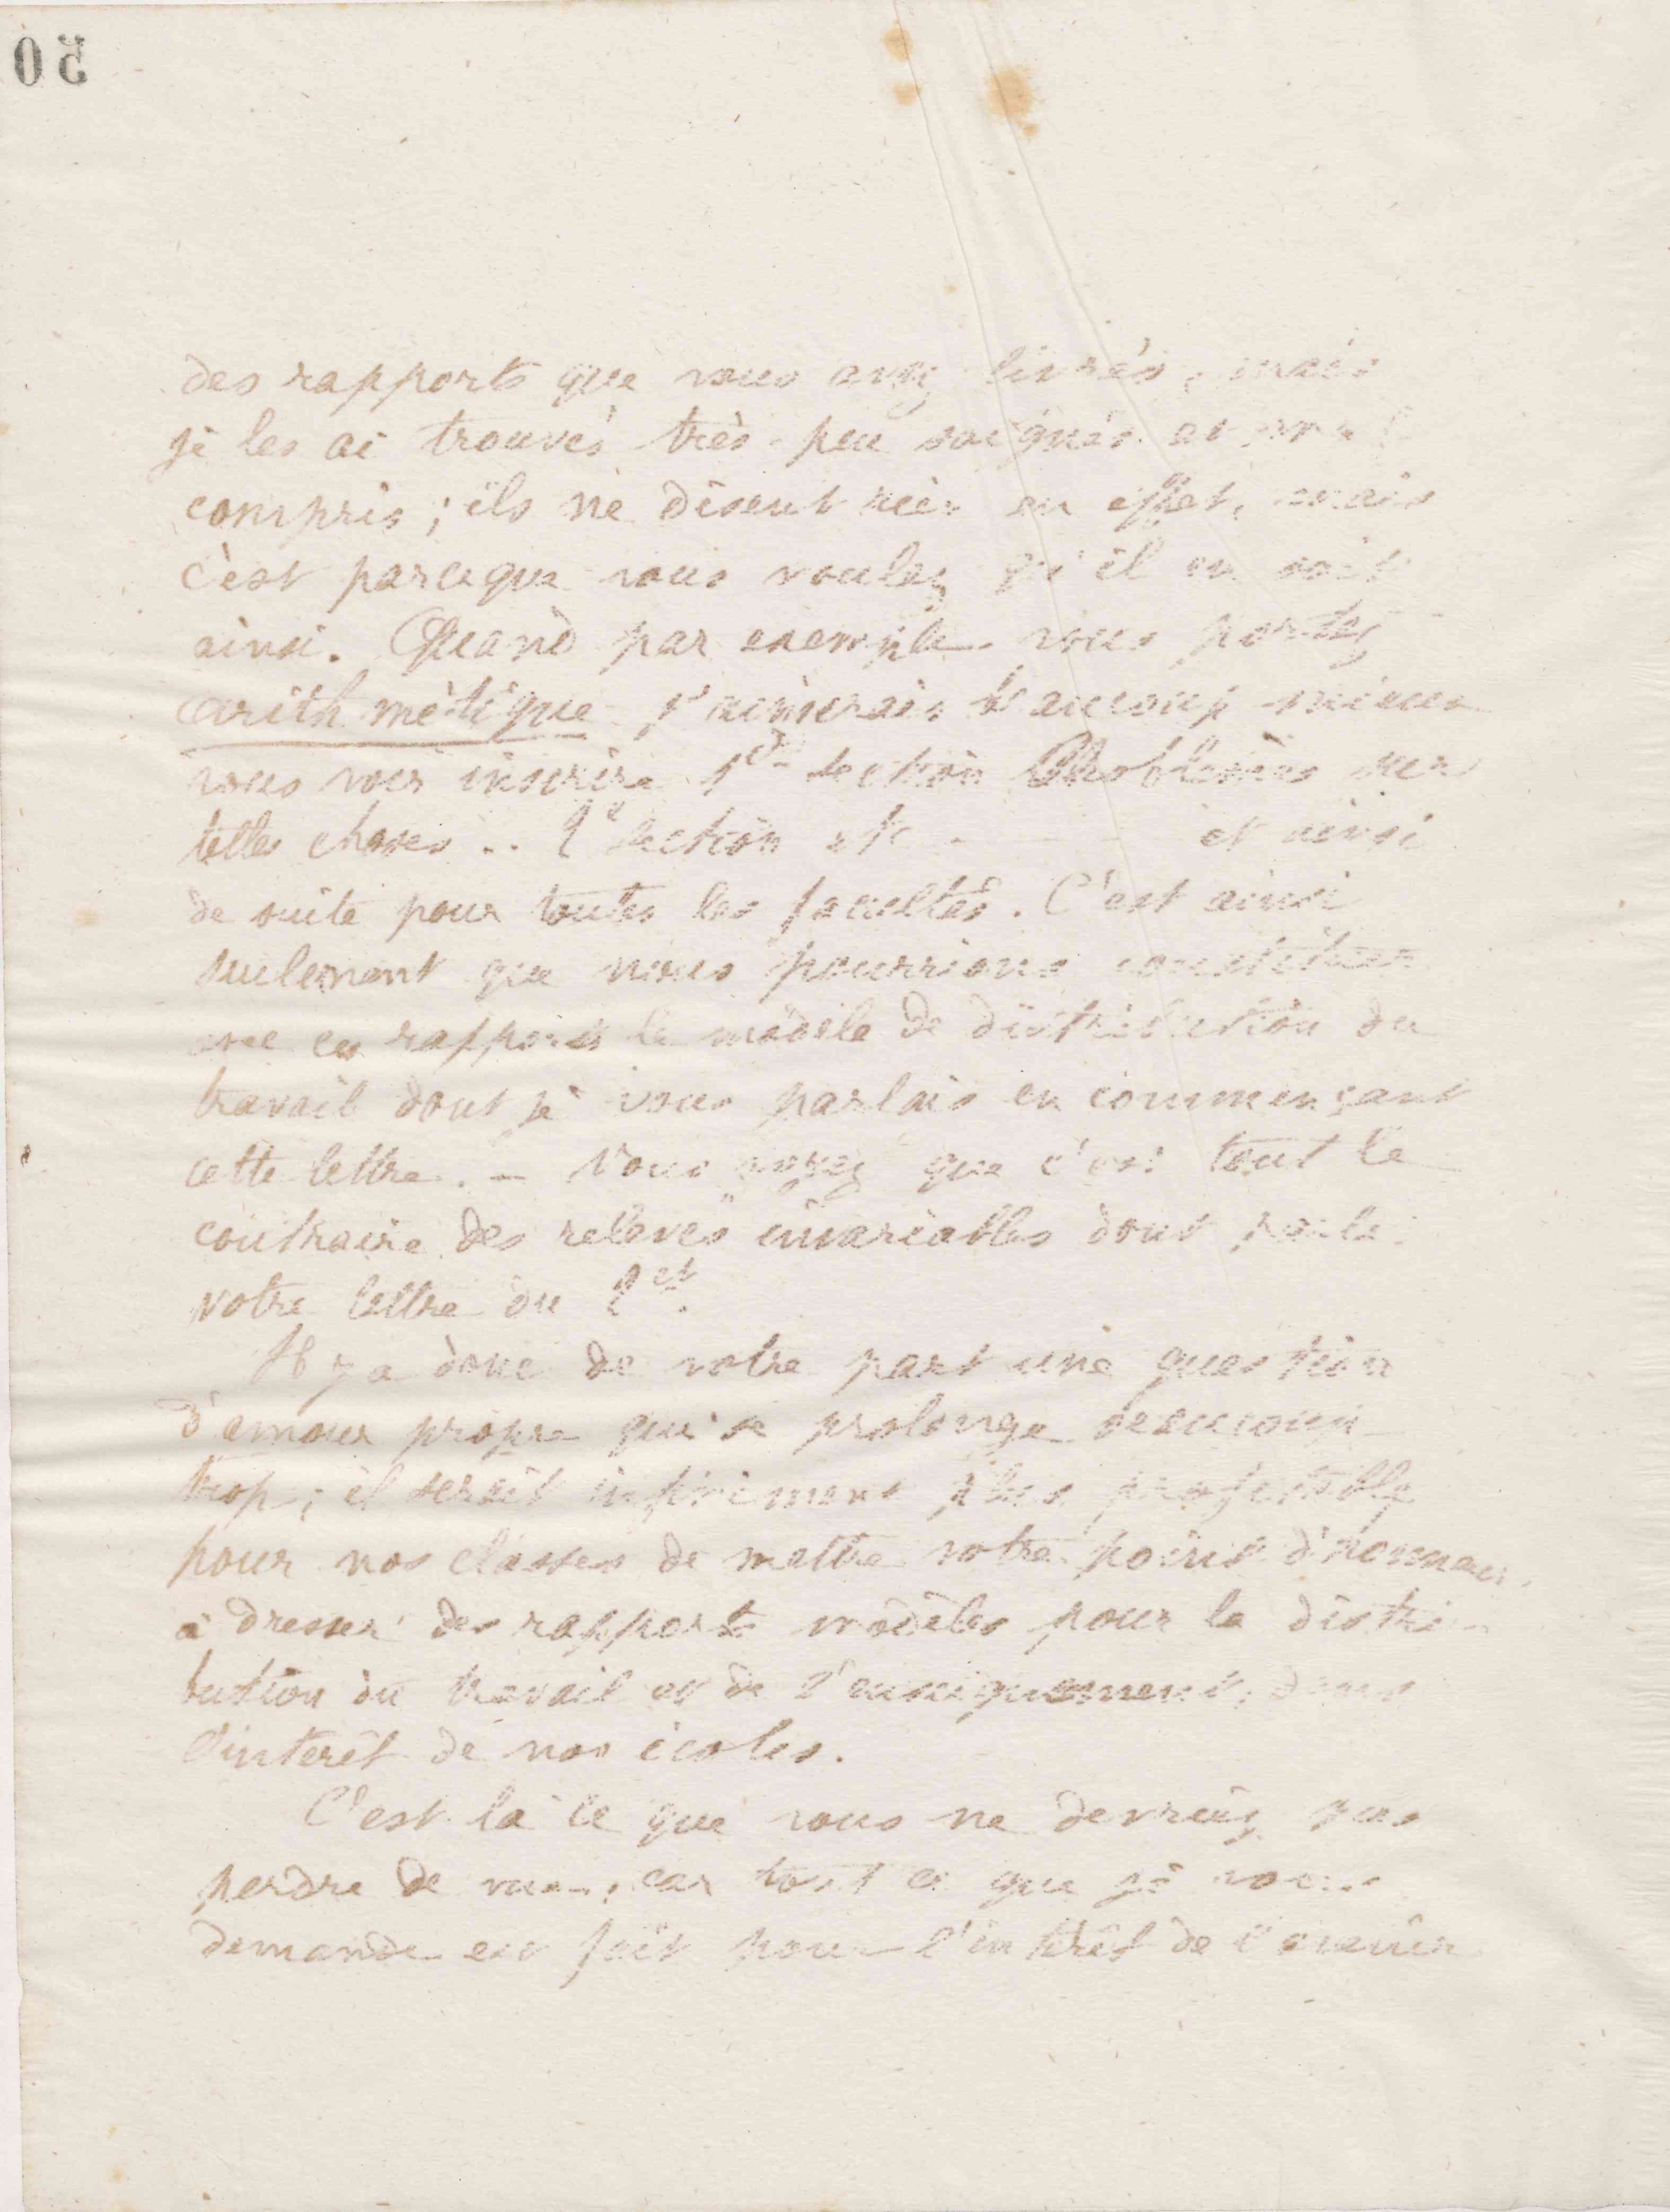 50
des rapports que vous avez livrés, mais
je les ai trouvés très-peu soignés et mal
compris ; ils ne disent rien en effet, mais
c'est parceque vous voulez qu'il en soit
ainsi. Quand par exemple vous portez
arithmétique j'aimerais beaucoup mieux
vous voir inscrire 1re section Problèmes sur
telles choses .. 2e section etc - - - et ainsi
de suite pour toutes les facultés. C'est ainsi
seulement que nous pourrions constituer
avec ces rapports le modèle de distribution du
travail dont je vous parlais en commençant
cette lettre. - Vous voyez que c'est tout le
contraire des relevés invariables dont parle
votre lettre du 2 ct.
Il y a donc de votre part une question
d'amour propre qui se prolonge beaucoup
trop ; il serait infiniment plus profitable
pour nos classes de mettre votre point d'honneur
à dresser des rapports modèles pour la distri-
bution du travail et de l'enseignement, dans
l'intérêt de nos écoles.
C'est là ce que vous ne devriez pas
perdre de vue, car tout ce que je vous
demande est fait pour l'intérêt de l'avenir